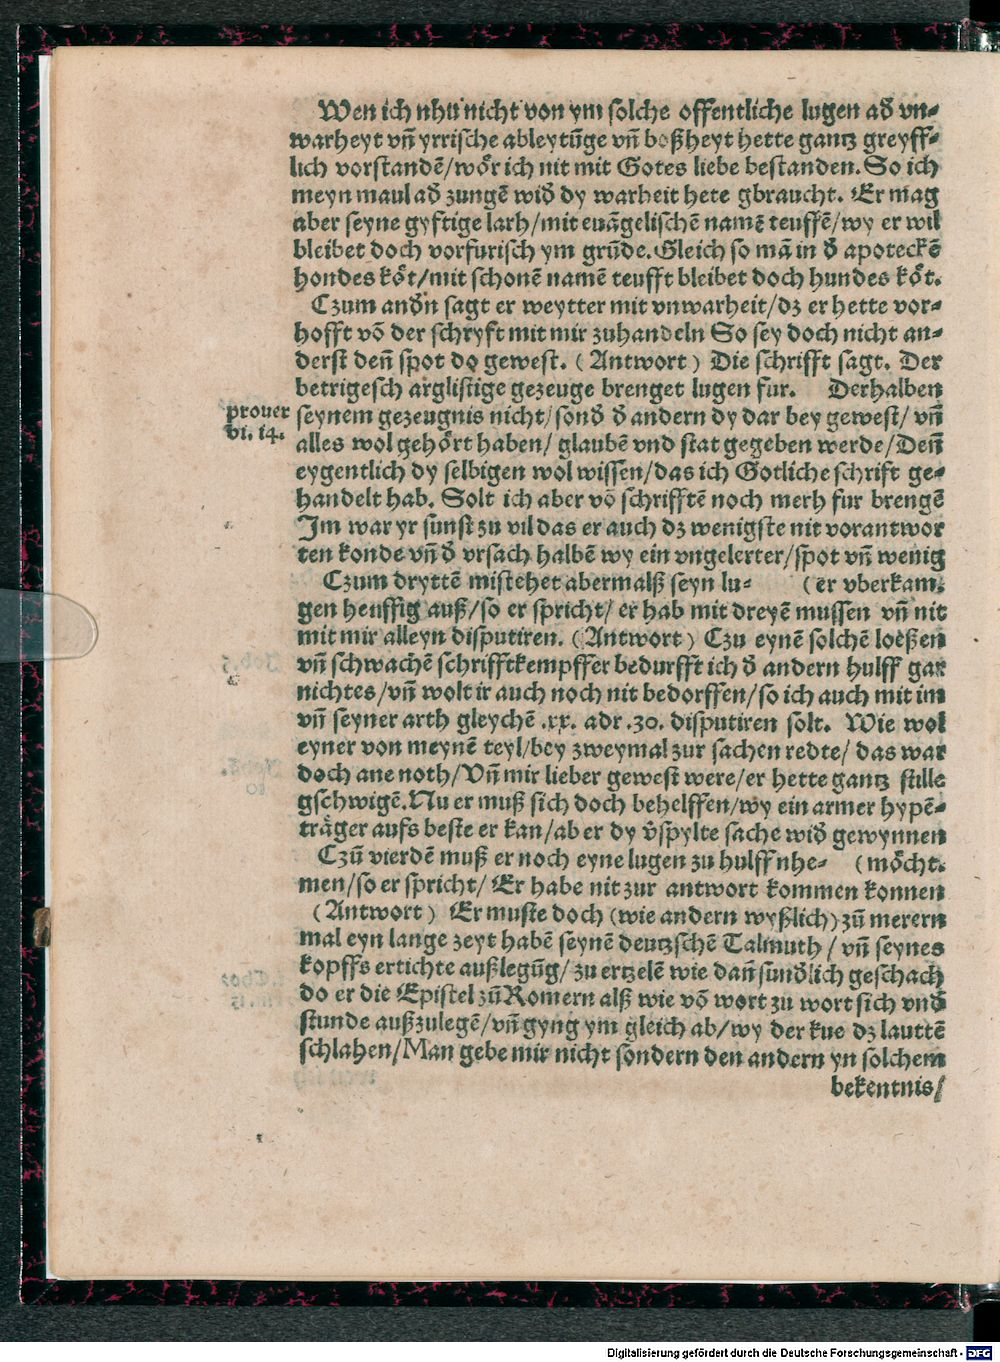 Wen ich nhu nicht von ym solche offentliche lugen ad̄ vn⸗
warheyt vn̄ yrrische ableytūge vn̄ boßheyt hette gantz greyff⸗
lich vorstandē/wo̊r ich nit mit Gotes liebe bestanden. So ich
meyn maul ad̄ zungē wid̄ dy warheit hete gbraucht. Er mag
aber seyne gyftige larh/mit euāgelischē namē teuffē/wy er wil
bleibet doch vorfurisch ym grūde. Gleich so mā in d̄ apoteckē
hondes ko̊t/mit schonē namē teufft bleibet doch hundes ko̊t.
Czum and̄n sagt er weytter mit vnwarheit/dz er hette vor⸗
hofft vō der schryft mit mir zuhandeln So sey doch nicht an⸗
derst den̄ spot do gewest. (Antwort) Die schrifft sagt. Der
betrigesch arglistige gezeuge brenget lugen fur. Derhalben
prouer
vi. 14.
seynem gezeugnis nicht/sond̄ d̄ andern dy dar bey gewest/ vn̄
alles wol geho̊rt haben/ glaubē vnd stat gegeben werde/Den̄
eygentlich dy selbigen wol wissen/das ich Gotliche schrift ge⸗
handelt hab. Solt ich aber vō schrifftē noch merh fur brengē
Im war yr sunst zu vil das er auch dz wenigste nit vorantwor
ten konde vn̄ d̄ vrsach halbē wy ein vngelerter/spot vn̄ wenig
Czum dryttē mistehet abermalß seyn lu⸗ (er vberkam.
gen heuffig auß/so er spricht/ er hab mit dreyē mussen vn̄ nit
mit mir alleyn disputiren. (Antwort) Czu eynē solchē loeßen
vn̄ schwachē schrifftkempffer bedurfft ich d̄ andern hulff gar
nichtes/vn̄ wolt ir auch noch nit bedorffen/so ich auch mit im
vn̄ seyner arth gleychē .xx. adr .30. disputiren solt. Wie wol
eyner von meynē teyl/bey zweymal zur sachen redte/ das war
doch ane noth/Vn̄ mir lieber gewest were/er hette gantz stille
gschwigē. Nu er muß sich doch behelffen/wy ein armer hypē⸗
tråger aufs beste er kan/ab er dy v̄spylte sache wid̄ gewynnen
Czū vierdē muß er noch eyne lugen zu hulff nhe⸗ (mo̊cht.
men/so er spricht/ Er habe nit zur antwort kommen konnen
(Antwort) Er muste doch (wie andern wyßlich) zū merern
mal eyn lange zeyt habē seynē deutzschē Talmuth/ vn̄ seynes
kopffs ertichte außlegūg/ zu ertzelē wie dan̄ sund̄lich geschach
do er die Epistel zū Romern alß wie vō wort zu wort sich vnd̄
stunde außzulegē/vn̄ gyng ym gleich ab/wy der kue dz lauttē
schlahen/Man gebe mir nicht sondern den andern yn solchem
bekentnis/
Digitalisierung gefördert durch die Deutsche Forschungsgemeinschaft - DFG